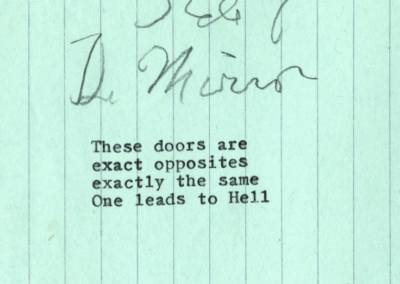 De Mirror
These doors are
exact opposites
exactly the same
One leads to Hell